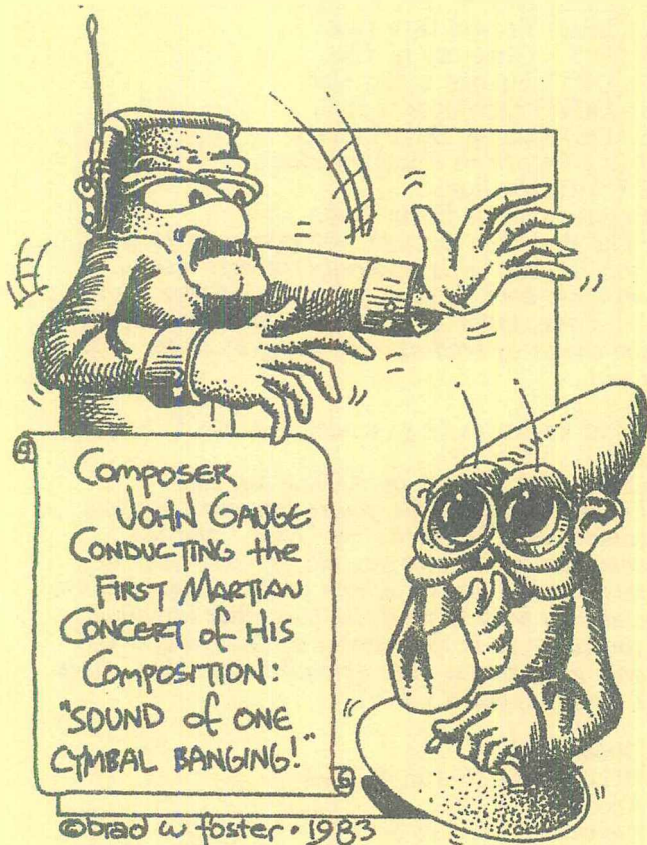 Composer
John Gauge
Conducting the
First Martian
Concert of His
Composition:
"Sound of One
Cymbal Banging!"
©brad w foster • 1983